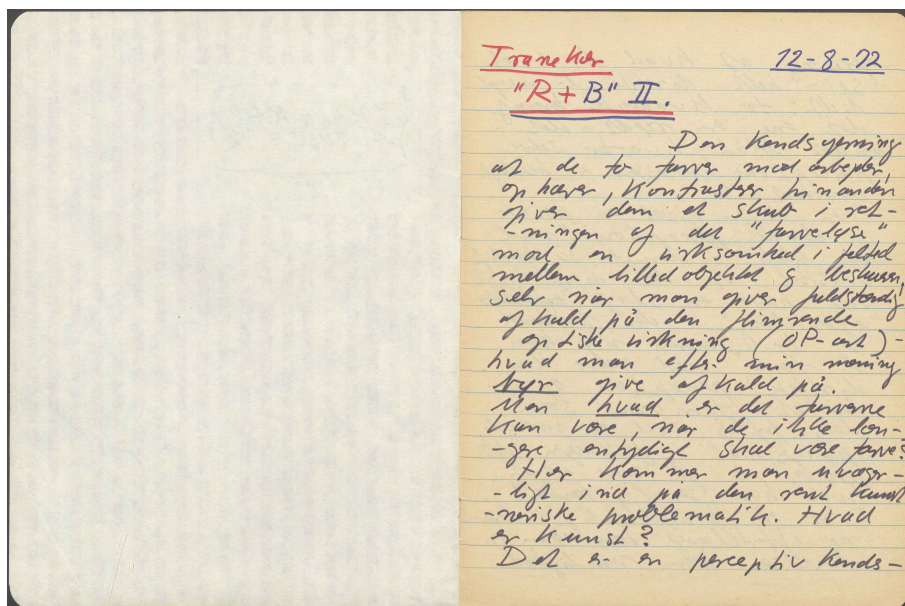 Tranekær 12-8-72
"R+B" II.
Den kendsgerning
at de to farver modarbejder,
ophæver, kontrasterer hinanden
giver dem et skub i ret-
-ningen af det "farveløse"
mod en virksomhed i feltet
mellem billedobjektet & beskueren,
selv når man giver fuldstændig
afkald på den flimrende
optiske virkning (OP-art) -
hvad man efter min mening
bør give afkald på.
Men hvad er det farverne
kan være, når de ikke læn-
-gere entydigt skal være farve?
Her kommer man uvæger-
-ligt ind på den rent kunst
-neriske problematik. Hvad
er kunst?
Det er en perceptiv kends-